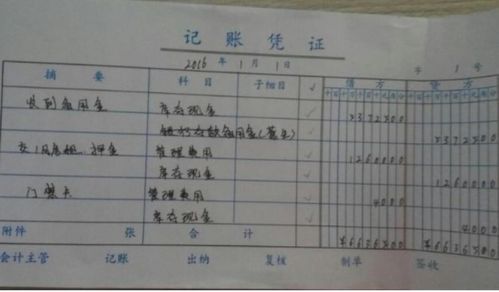 记账凭证
2016年1月1日 字1号
摘要 科目 子细目 √ 借方 贷方
收到备用金 库存现金 √ 5372500
备用金( 5372500
交1月房租、押金 管理费用 √ 1260000
库存现金 √ 1260000
门禁卡 管理费用 √ 4000
库存现金 √ 4000
附件 张 合计 ¥6636500 ¥6636500
会计主管 记账 出纳 复核 制单 签收